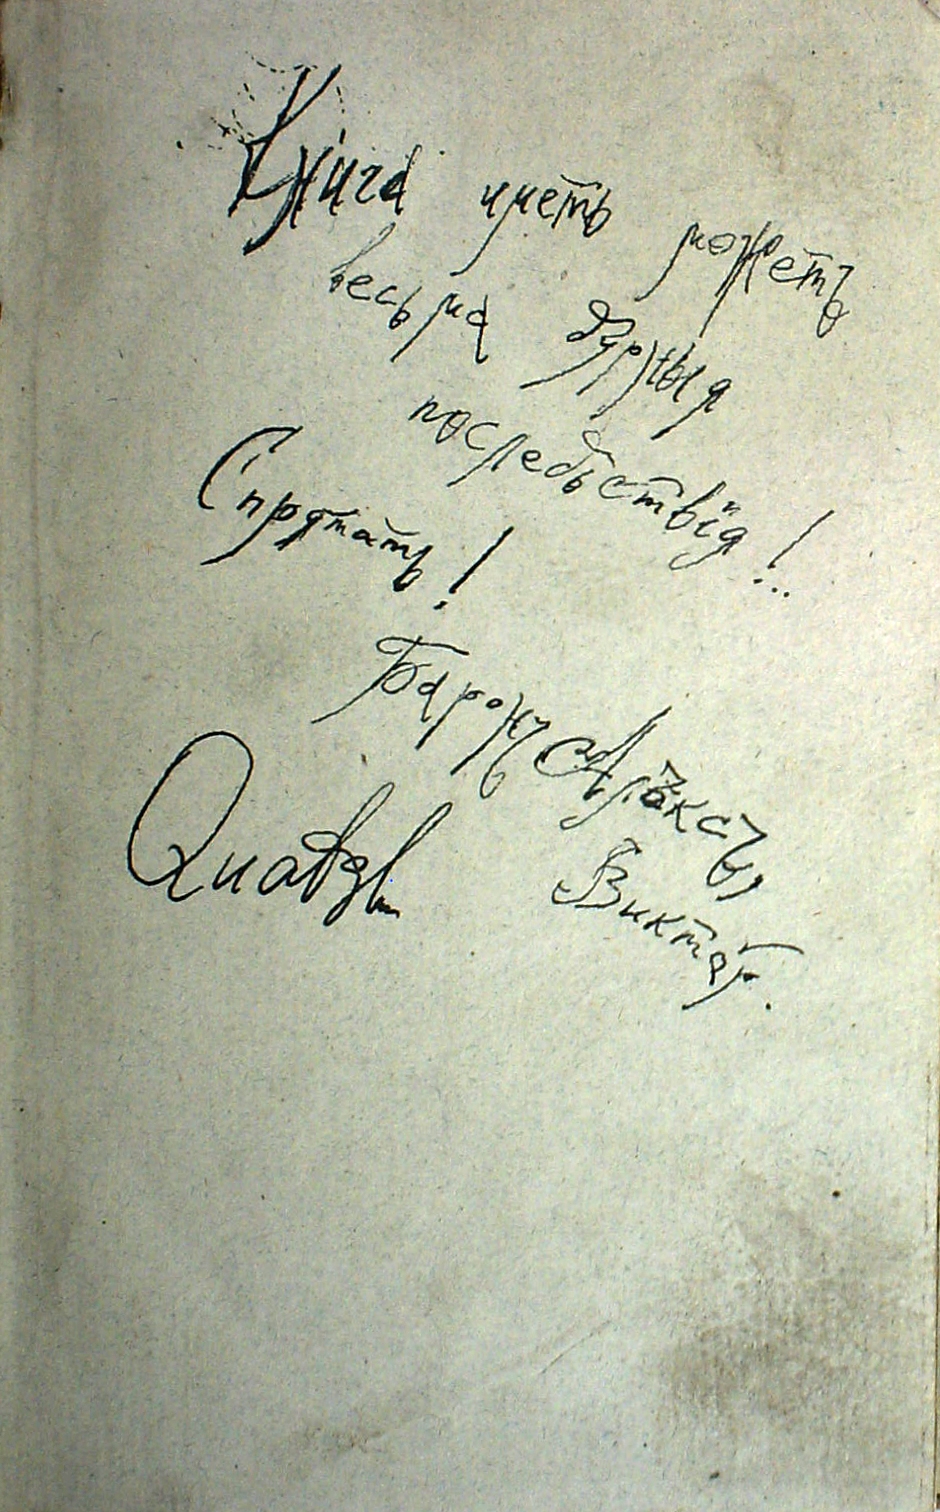 Книга иметь можетъ
весьма дурныя
последствія!..
Спрятать!
Баронъ Алѣксъ,
Виктор.